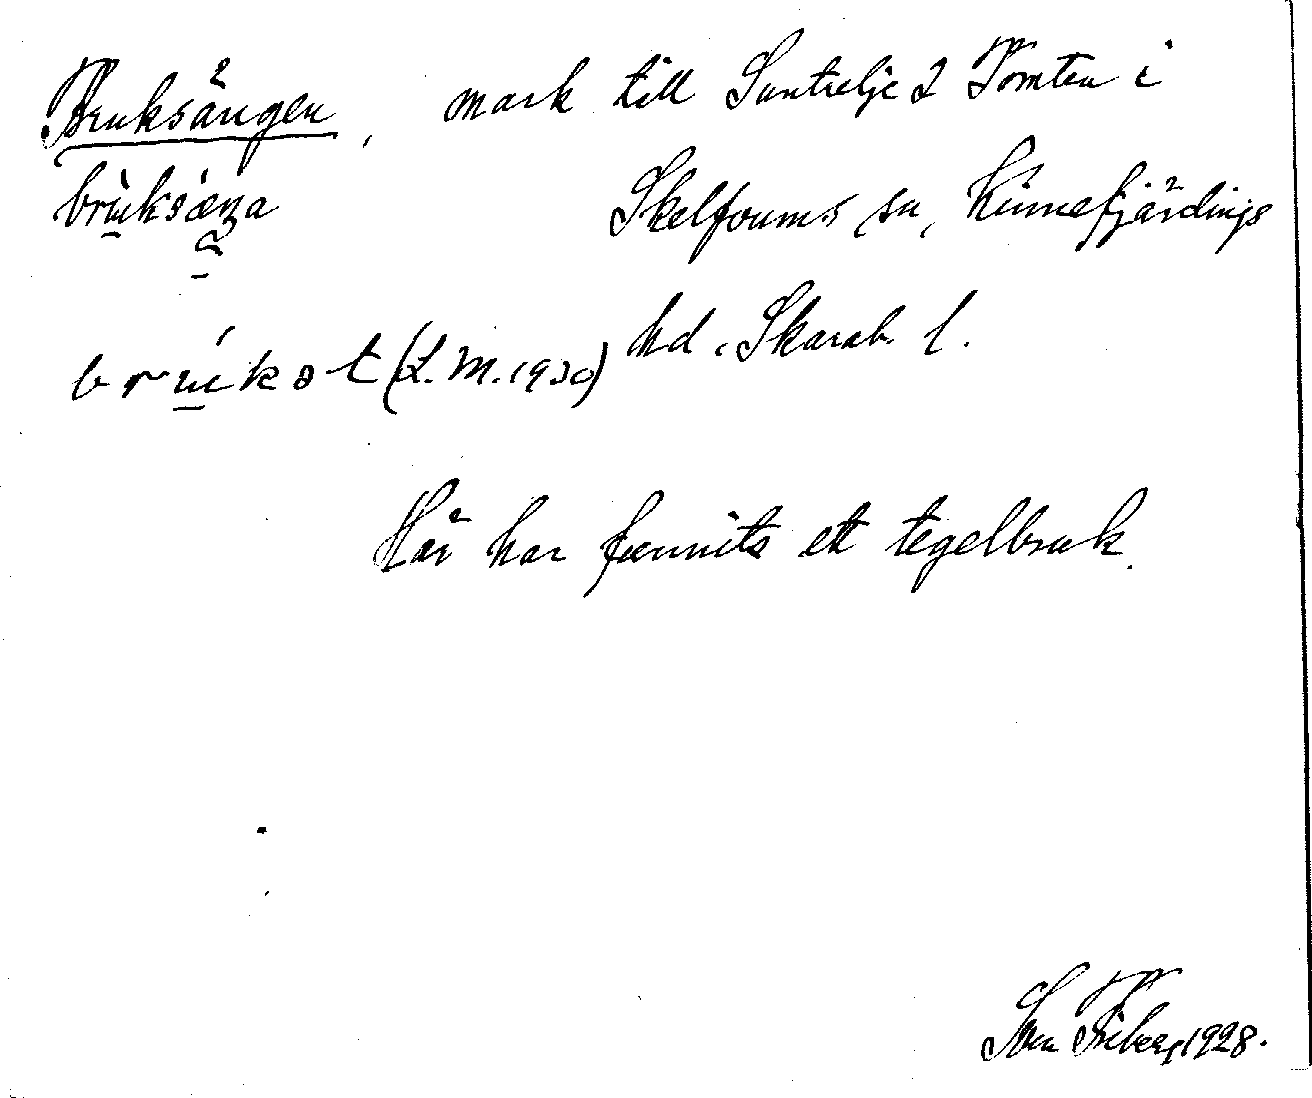 Bruksängen, mark till Suntrelje 2 Tomten i
brùksǽŋa Skelfvums sn, Kinnefjärdings
brúkət (L.M. 1930) hd. Skarab. l.
Här har funnits ett tegelbruk.
Sven Friberg 1928.